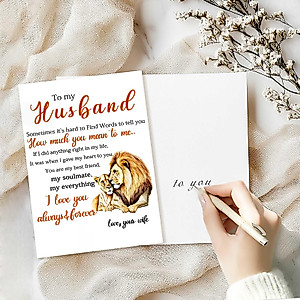 To my
Husband
Sometimes It's hard to Find Words to tell you
How much you mean to me..
If I did anything right in my life,
It was when I gave my heart to you
You are my best friend,
my soulmate,
my everything
I love you
always & forever
love, your wife
to you